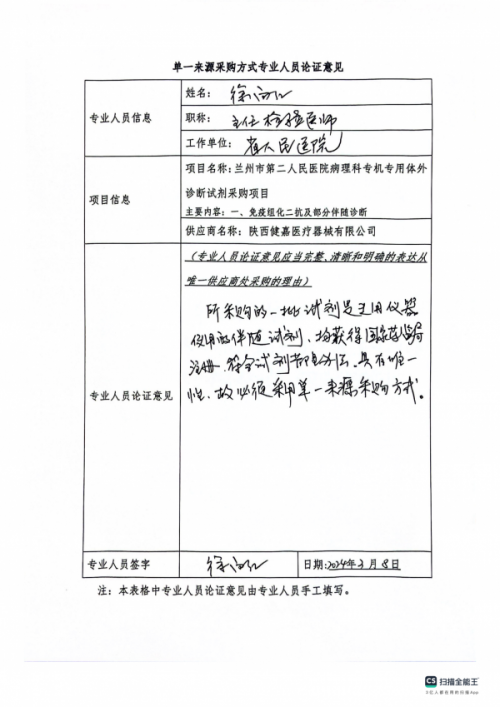 单一来源采购方式专业人员论证意见
专业人员信息
姓名： 徐
职称： 主任检验医师
工作单位： 省人民医院
项目信息
项目名称：兰州市第二人民医院病理科专机专用体外
诊断试剂采购项目
主要内容：一、免疫组化二抗及部分伴随诊断
供应商名称：陕西健嘉医疗器械有限公司
专业人员论证意见
（专业人员论证意见应当完整、清晰和明确的表达从
唯一供应商处采购的理由）
所采购的一批试剂是专用仪器
使用的伴随试剂，均获得国家药监局
注册，符合试剂 具有唯一
性，故必须采用单一来源采购方式。
专业人员签字
徐
日期：2024年 月8日
注：本表格中专业人员论证意见由专业人员手工填写。
CS 扫描全能王
3亿人都在用的扫描App